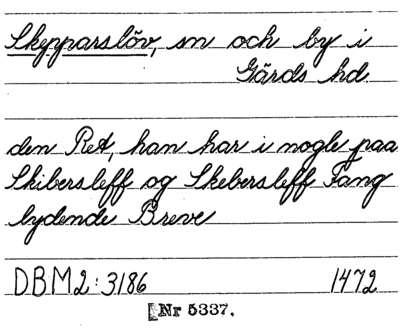 Skepparslöv, sn och by i
Gärds hd.
den Ret, han har i nogle paa
Skibersleff og Skebersleff Fang
lydende Breve
DBM2:3186 1472
Nr 5337.